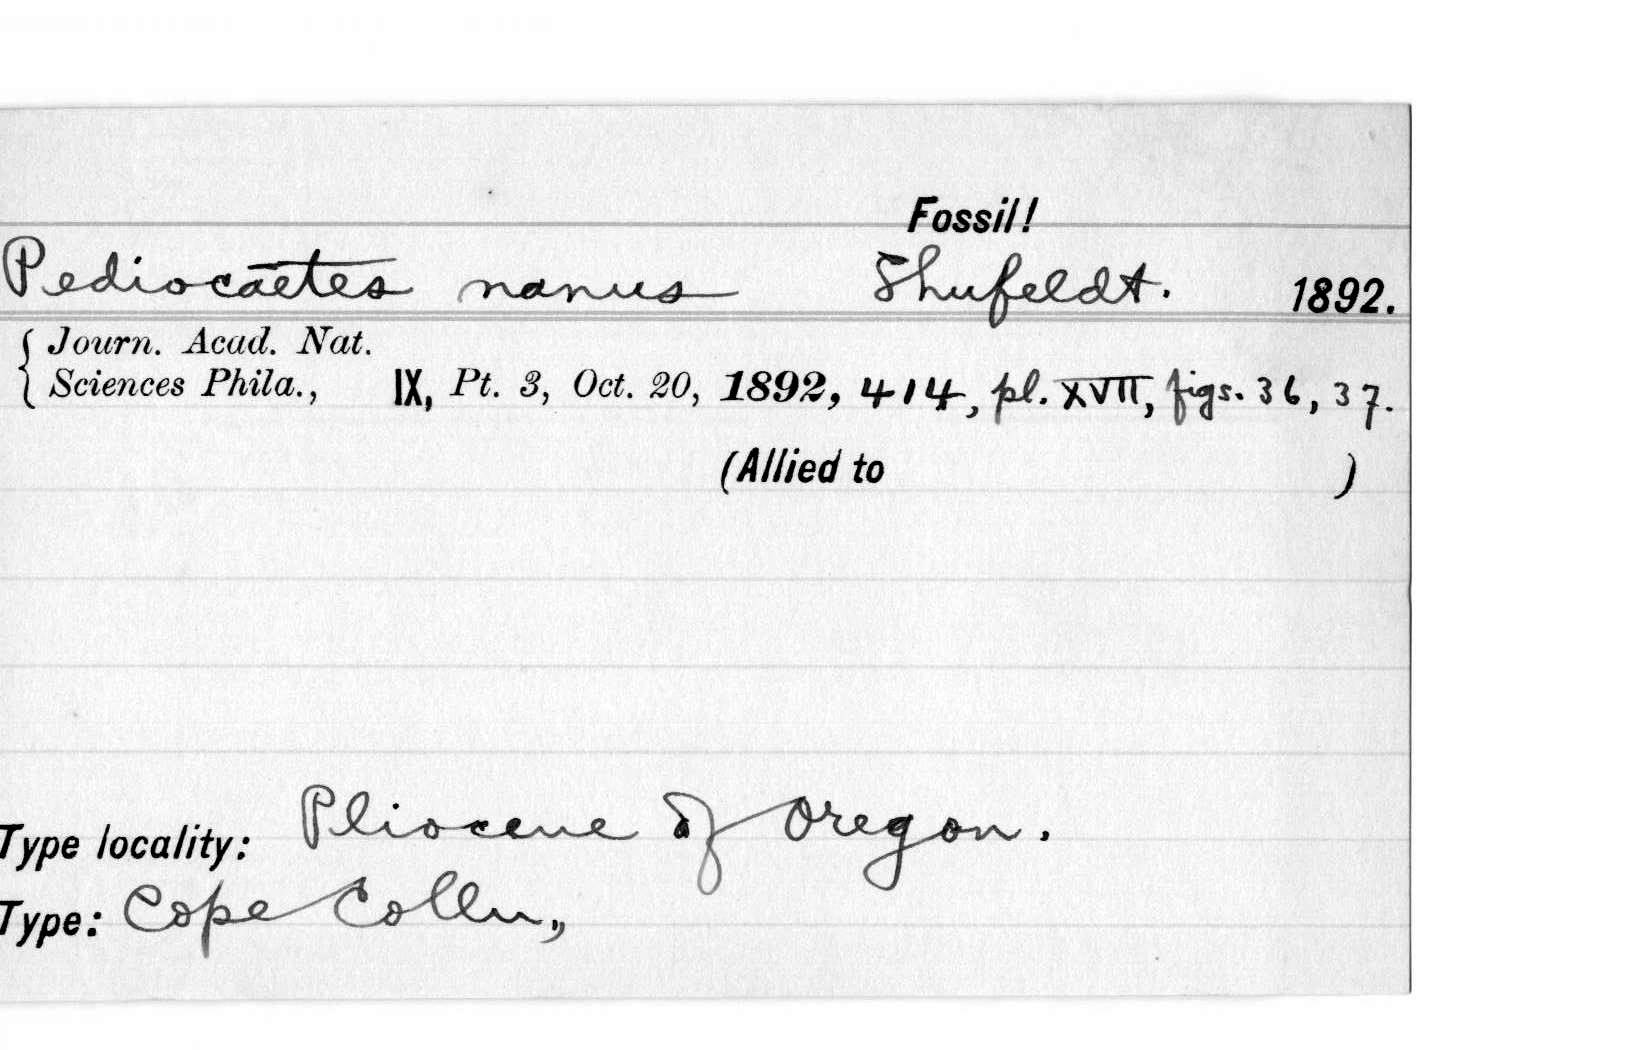 Fossil!
Pediocaetes nanus Shufeldt. 1892.
Journ. Acad. Nat.
Sciences Phila., IX, Pt. 3, Oct. 20, 1892, 414, pl. XVII, figs. 36, 37.
(Allied to )
Type locality: Pliocene of Oregon.
Type: Cope Colln.,